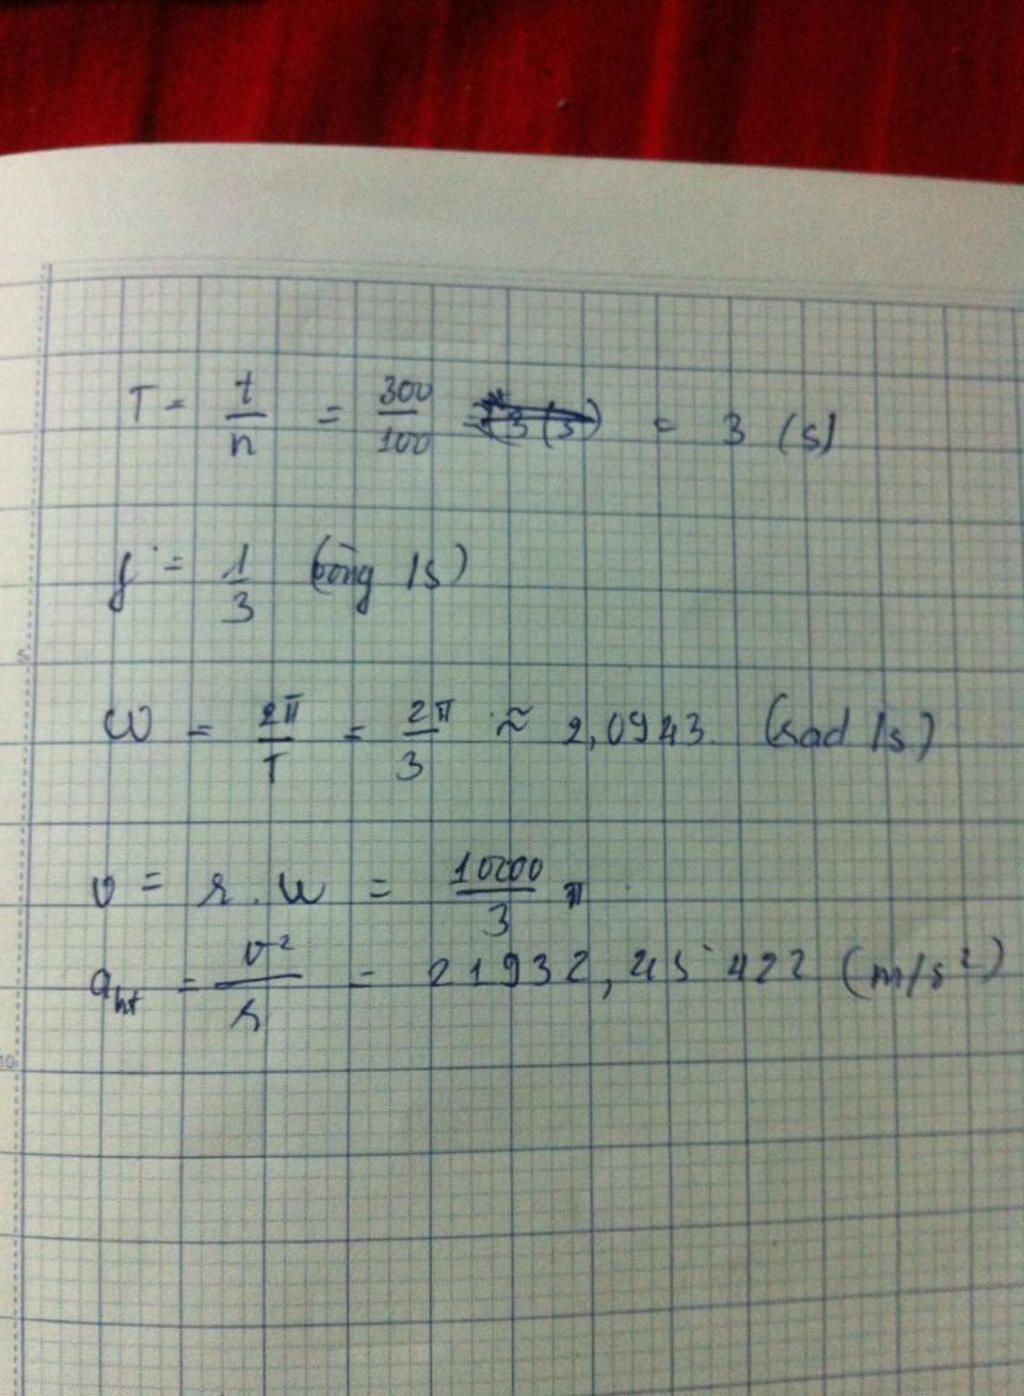 T = t/n = 300/100 = 3 (s)
f = 1/3 (vòng /s)
ω = 2π/T = 2π/3 ≈ 2,0943 (rad /s)
v = r . ω = 10000/3 π
aht = v²/r = 21932,45422 (m/s²)
10